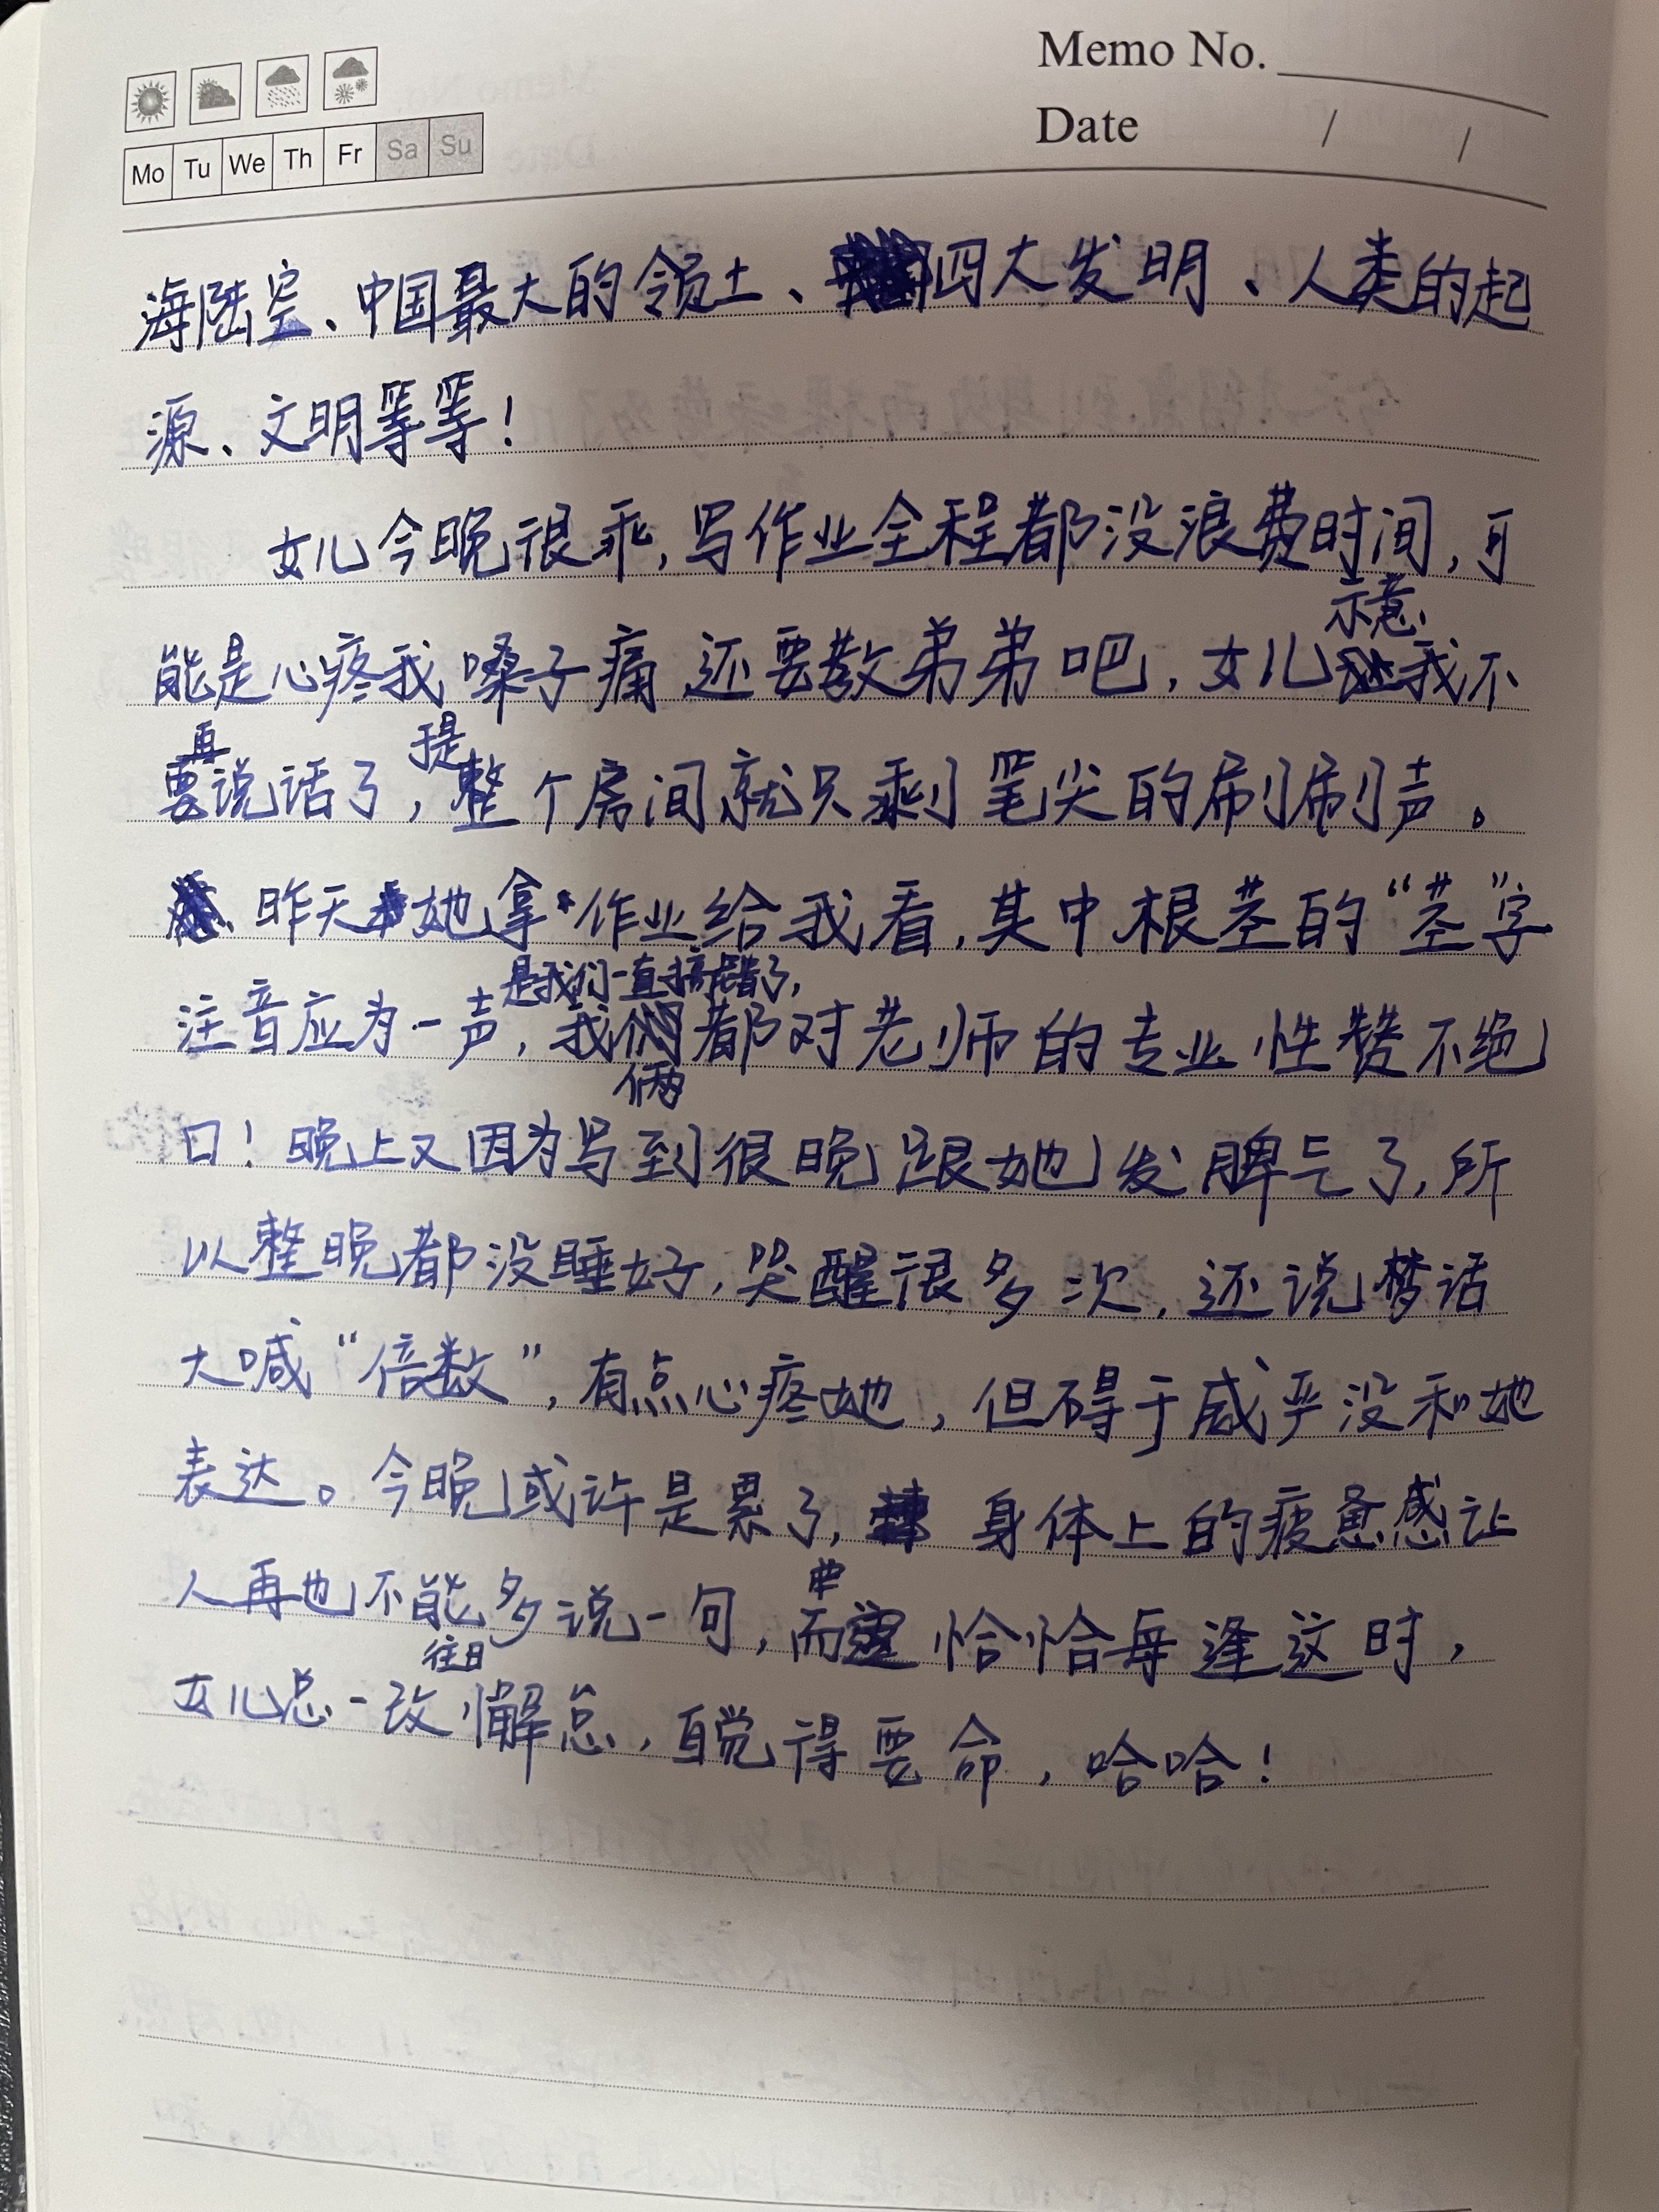 Memo No.
Date / /
Mo Tu We Th Fr Sa Su
海陆空、中国最大的领土、四大发明、人类的起
源、文明等等！
女儿今晚很乖，写作业全程都没浪费时间，可
能是心疼我嗓子痛还要教弟弟吧，女儿示意我不
要再说话了，于是整个房间就只剩笔尖的刷刷声。
昨天她拿作业给我看，其中根茎的“茎”字
注音应为一声，是我们一直搞错了，我俩都对老师的专业性赞不绝
口！晚上又因为写到很晚跟她发脾气了，所
以整晚都没睡好，哭醒很多次，还说梦话
大喊“倍数”，有点心疼她，但碍于威严没和她
表达。今晚或许是累了，身体上的疲惫感让
人再也不能多说一句，而恰恰每逢这时，
女儿总一改往日懈怠，自觉得要命，哈哈！